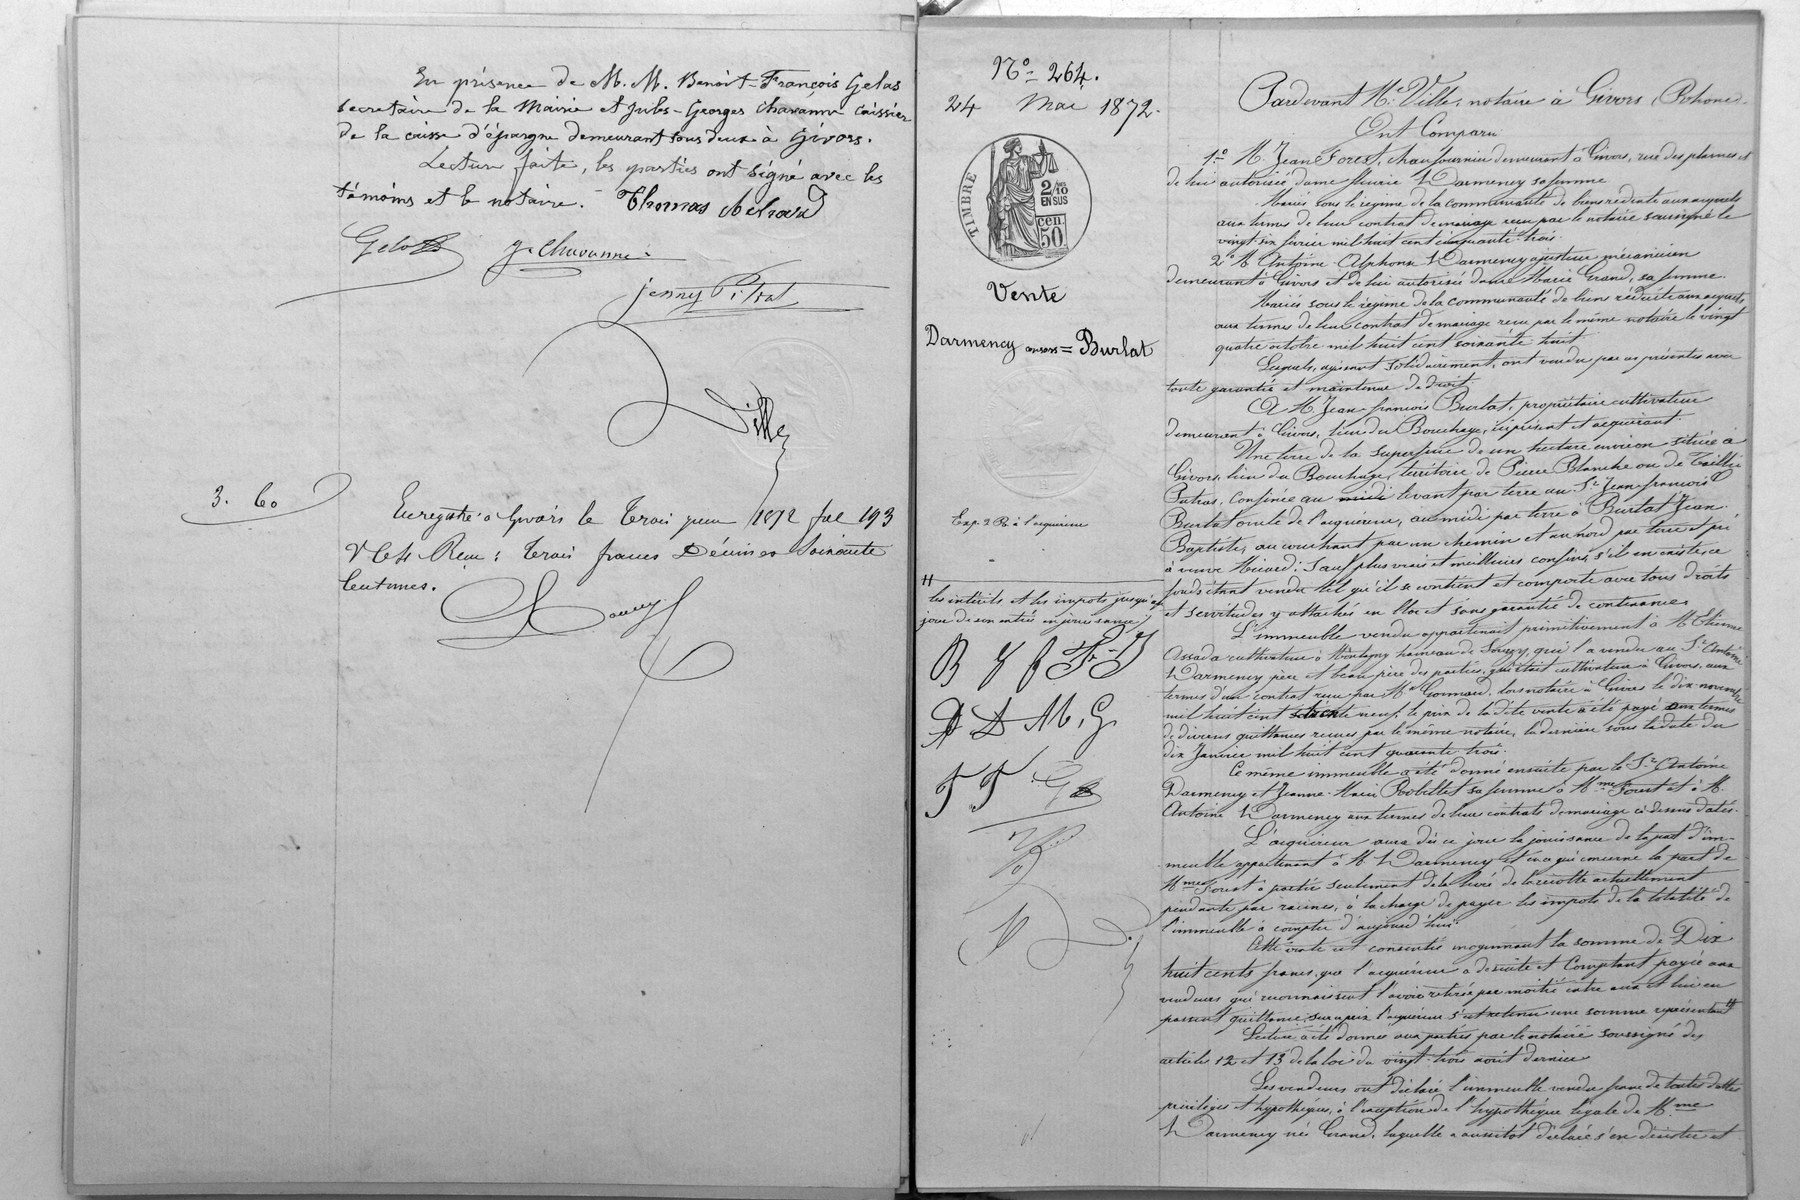 En présence de M. M. Benoit-François Gelas
secrétaire de la Mairie et Jules-Georges Chavanne caissier
de la caisse d'épargne demeurant tous deux à Givors.
Lecture faite, les parties ont signé avec les
témoins et le notaire. Thomas Achard
Gelas J. Chavanne
Jenny Pitrat
Ville
3. 60
Enregistré à Givors le Trois juin 1872 fol 193
Reçu : Trois francs Décimes Soixante
Centimes.
No 264.
24 Mai 1872.
TIMBRE
2/10
EN SUS
50 cen
Vente
Darmency = Burlat
Exp. 2 R. à l'acquéreur
les intérêts et les impots jusqu'au
jour de son entrée en jouissance
A D M. G
Pardevant Me Ville, notaire à Givors (Rhône)
Ont Comparu
1o M. Jean Forest, chaufournier demeurant à Givors, rue des plaines et
de lui autorisée dame fleurie Darmency sa femme
Mariés sous le régime de la communauté de biens réduite aux acquets
aux termes de leur contrat de mariage reçu par le notaire soussigné le
vingt six février mil huit cent cinquante trois.
2o M. Antoine Alphonse Darmency ajusteur mécanicien
demeurant à Givors et de lui autorisée dame Marie Grand, sa femme
Mariés sous le régime de la communauté de biens réduite aux acquets
aux termes de leur contrat de mariage reçu par le même notaire le vingt
quatre octobre mil huit cent soixante huit.
Lesquels, agissant solidairement, ont vendu par ces présentes avec
toute garantie et maintenue de droit.
A M. Jean-françois Burlat, propriétaire cultivateur
demeurant à Givors, lieu du Bouchage, ici présent et acquérant.
Une terre de la superficie de un hectare environ située à
Givors, lieu du Bouchage, territoire de Pierre Blanche ou de Taille
Putras, confinée au midi levant par terre au Sr Jean-françois
Burlat oncle de l'acquéreur, au midi par terre à Burlat Jean
Baptiste, au couchant par un chemin et au nord par terre et pré
à veuve Micard. Sauf plus vrais et meilleurs confins, s'il en existe, ce
fonds étant vendu tel qu'il se contient et comporte avec tous droits
et servitudes y attachés en bloc et sans garantie de contenance.
L'immeuble vendu appartenait primitivement à M. Etienne
Assada cultivateur à Montagny hameau de Sourzy, qui l'a vendu au Sr Antoine
Darmency père et beau père des parties, qui était cultivateur à Givors, aux
termes d'un contrat reçu par Me Gonnard, lors notaire à Givors le dix novembre
mil huit cent trente neuf, le prix de la dite vente a été payé aux termes
de diverses quittances reçues par le même notaire, la dernière sous la date du
dix Janvier mil huit cent quarante trois.
Ce même immeuble a été donné ensuite par le Sr Antoine
Darmency et Jeanne-Marie Robillet sa femme à Mme Forest et à M.
Antoine Darmency aux termes de leurs contrats de mariage ci-dessus datés.
L'acquéreur aura dès ce jour la jouissance de la part d'im-
meuble appartenant à M. Darmency et en ce qui concerne la part de
Mme Forest à partir seulement de la levée de la récolte actuellement
pendante par racines, à la charge de payer les impots de la totalité de
l'immeuble à compter d'aujourd'hui.
Cette vente est consentie moyennant la somme de Dix
huit cents francs, que l'acquéreur a de suite et Comptant payée aux
vendeurs qui reconnaissent l'avoir retirée par moitié entre eux et lui en
passent quittance, sur ce prix l'acquéreur s'est retenu une somme représentant
Lecture a été donnée aux parties par le notaire soussigné des
articles 12 et 13 de la loi du vingt-trois août dernier
Les vendeurs ont déclaré l'immeuble vendu franc de toutes dettes
privilèges et hypothèques, à l'exception de l'hypothèque légale de Mme
Darmency née Grand, laquelle a aussitot déclaré s'en désister et